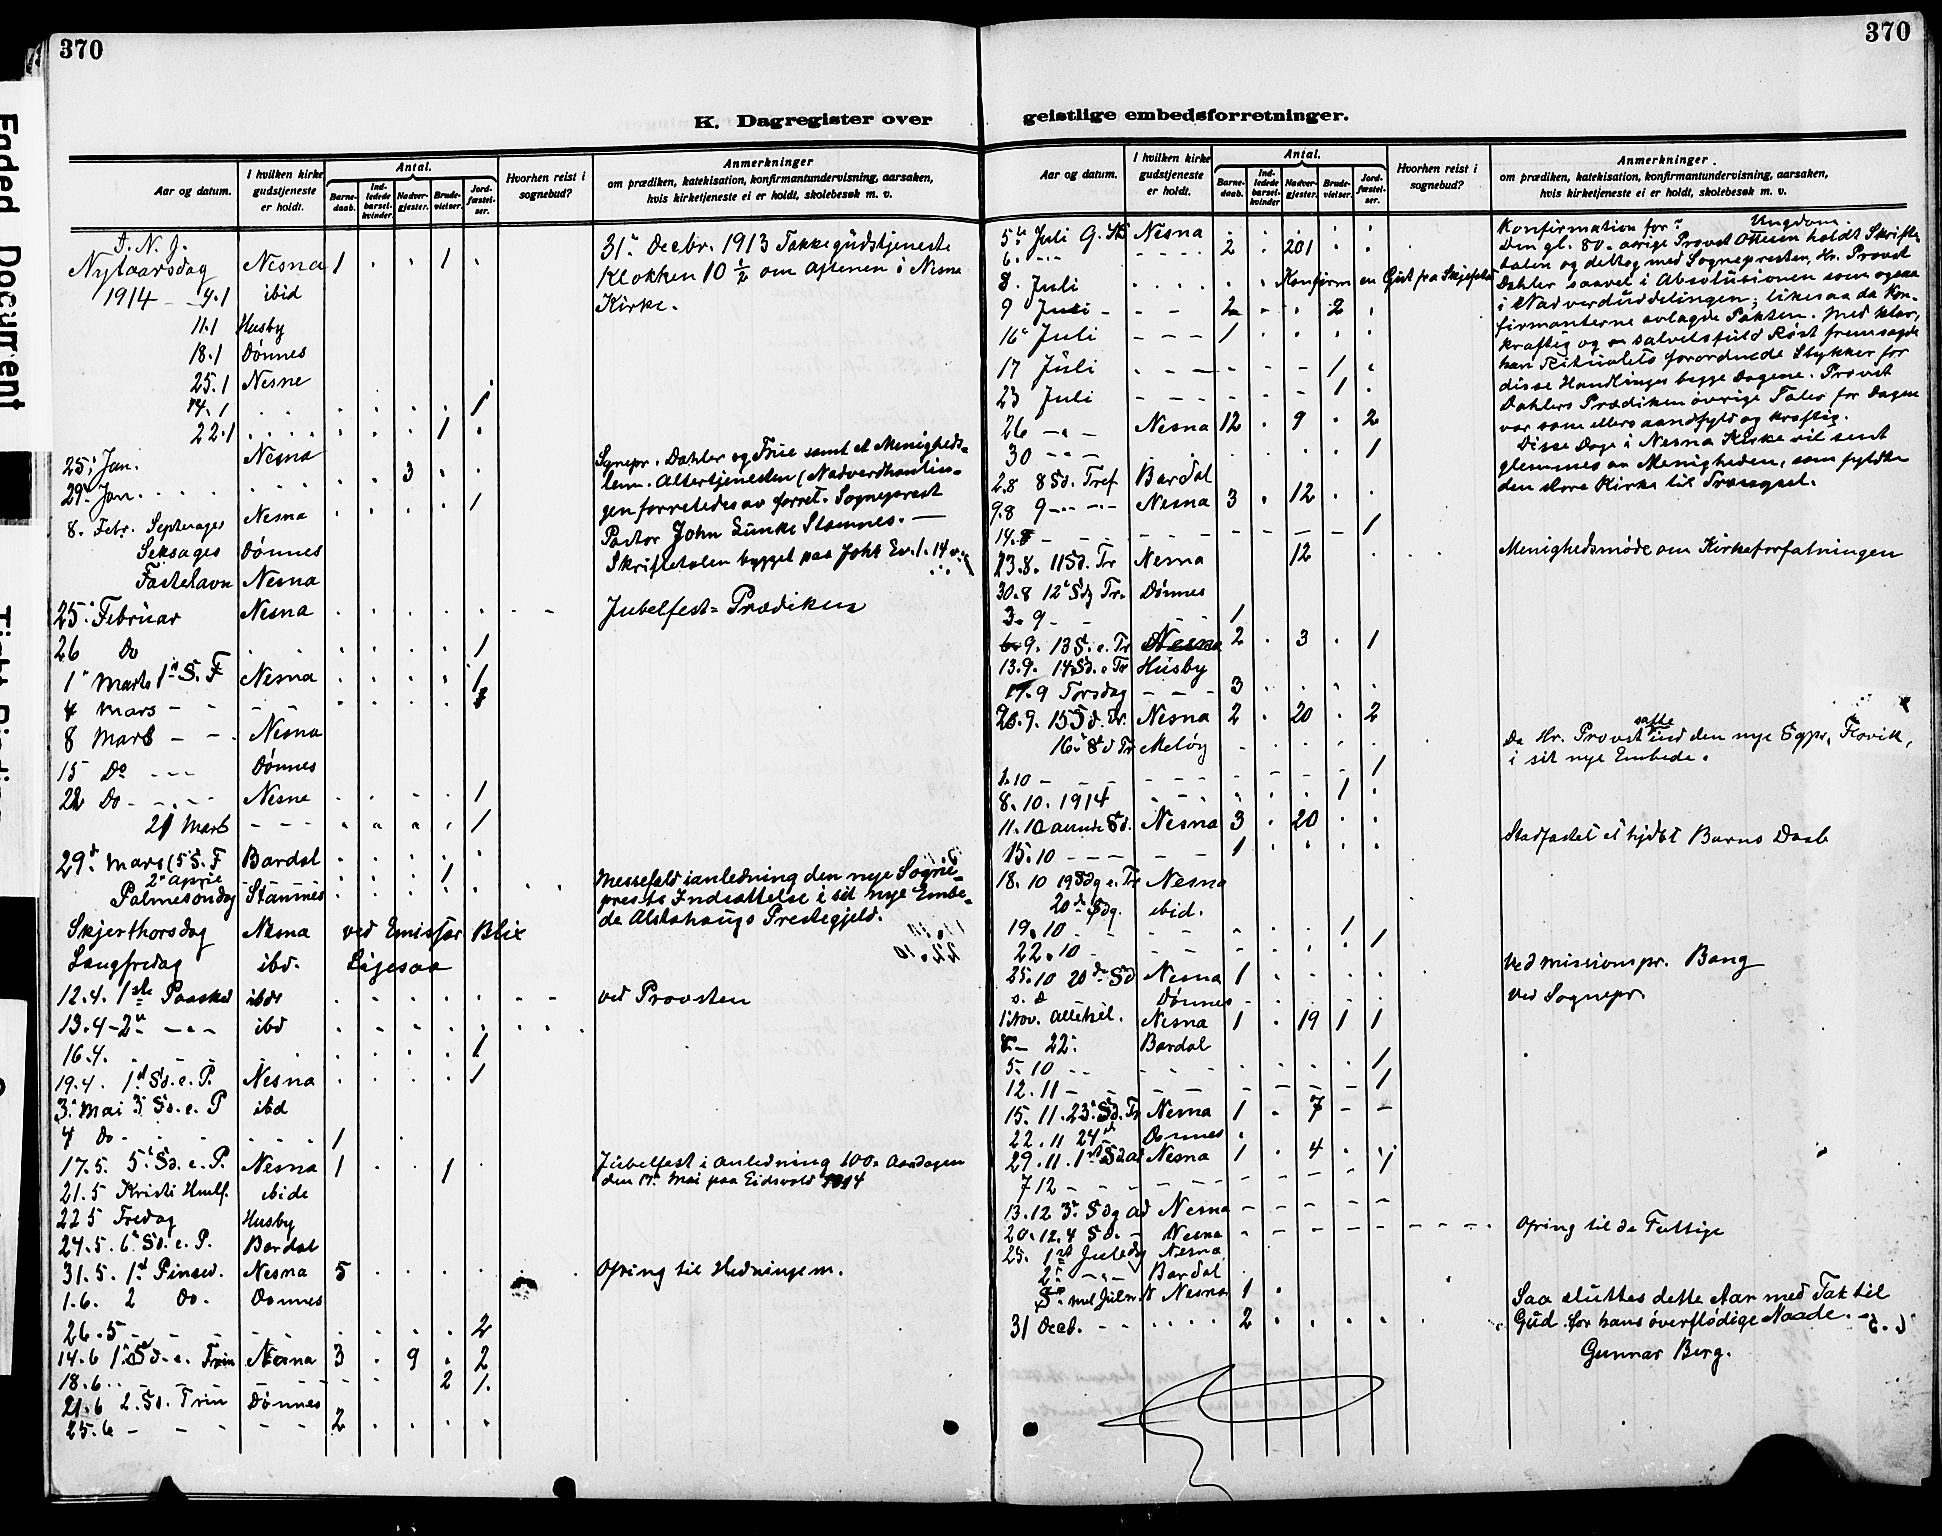 370
K. Dagregister over
Aar og datum.
I hvilken kirke gudstjeneste er holdt.
Antal.
Barne-daab.
Ind-ledede barsel-kvinder
Nadver-gjester.
Brude-vielser.
Jord-fæstel-ser.
Hvorhen reist i sognebud?
Anmerkninger
om prædiken, katekisation, konfirmantundervisning, aarsaken,
hvis kirketjeneste ei er holdt, skolebesøk m. v.
I. N. J.
Nytaarsdag Nesna 1 . . 1 . 31. Decbr. 1913 Takkegudstjeneste
1914 - 4.1 ibid Klokken 10 ½ om Aftenen i Nesna
Kirke.
11.1 Husby
18.1 Dönnes
25.1 Nesne
14.1 . . . . . . 1
22.1 . . . . . . . 1 .
25. Jan. Nesna . . 3 . . Sgnepr. Dahler og Frue samt et Menigheds-
29. Jan. . . . . . . . lem. Altertjenesten (Nadverdhandlin-
8. Febr. Septuages Nesna . . . . 1 gen forrettedes av forret. Sogneprest
Seksages Dönnes Pastor John Lunke Stamnes. -
Fastelavn Nesna Skriftetalen bygget paa Joh. Ev. 1. 14 v.
25. Februar Nesna . . . . . . - Jubelfest-Prædiken
26 Do . . . . . . 1
1. Marts 1. S. F Nesna . . . . 1
4 Mars - - - - . . . .
8 Mars - - . Nesna
15 Do - - - Dönnes
22 Do - - . - - Nesne . . . . 1
21 Mars - - - . . . . 1
29. Mars (5 S. F Bardal . . . . .
2. April . . . 1
Palmesondag Stamnes . . . . . . . Messefald i anledning den nye Sogne-
prests Indsættelse i sit nye Embe-
de Alstahaugs Prestegjeld.
Skjerthorsdag Nesna ved Emissær Blix
Langfredag ibd. Ligesaa
12.4. 1ste Paasked ibde . . . . . - - ved Provsten
13.4 - 2. - - - ibd . . . . . . . .
16.4. - - - . . . . . 1
19.4. 1. Sd. e. P. Nesna . . . . 1
3. Mai 3. Sd. e. P ibd
4 do - - - - . . . 1
17.5. 5. Sd. e. P. Nesna 1 . . 1 . Jubelfest i anledning 100-Aarsdagen
21.5 Kristi Himlf. ibide den 17. Mai paa Eidsvold 1914
22 5 Fredag Husby
24.5. 6. Sd. e. P. Bardal
31.5. 1. Pinsed. Nesna 5 . . . . . Ofring til Hedningem.
1.6. 2 do. Donnes
26.5 - - - - - - . . . . 2
14.6 1. Sd. e. Trin Nesna 3 . 9 . 2
18.6 - - - - - - - - . . 2 1.
21.6 2. Sd. Trin Dönnes
25.6 - - - - - - 2 . . . .
370
geistlige embedsforretninger.
Aar og datum.
I hvilken kirke gudstjeneste er holdt.
Antal.
Barne-daab.
Ind-ledede barsel-kvinder
Nadver-gjester.
Brude-vielser.
Jord-fæstel-ser.
Hvorhen reist i sognebud?
Anmerkninger.
om prædiken, katekisation, konfirmantundervisning, aarsaken,
hvis kirketjeneste ei er holdt, skolebesøk m. v.
5. Juli Nesna . . . . .
6. - - - - - - - 2 . 201 . . .
8. Juli . . . . . . Konfirm en Gut fra Skjefeld
9 Juli - - - 2 - . 2 .
16. Juli - - - 1 . . . .
17 Juli . - - - - - 1 .
23 Juli - - - - - - 1 .
26 - . - Nesna 12 . 9 . 2
30 - - - . . . . . 1
Konfirmation for Ungdom.
Den gl. 80-aarige Provst holdt Skrifte-
talen og deltog med Sognepresten, Hr. Provst
Dahler saavel i Absolutionen som ogsaa
i Nadverduddelingen; likesaa da Kon-
firmanterne avlagde Pakten. Med klar,
kraftig og salvelsfuld Röst fremsagde
han Ritualets forordnede Stykker for
disse Handlinger begge Dagene. Provst
Dahlers Prædiken övrige Taler for Dagen
var som ellers aandfyld og kraftig.
Disse Dage i Nesna Kirke vil sent
glemmes av Menigheden, som fyldte
den store Kirke til Trængsel.
2.8 8 Sd. Tref Bardal
9.8 9 - - - - Nesna 3 . 12 . .
14.8 - - - - - - - - 1
23.8. 11 Sd. Tr Nesna 12 . . . Menighedsmöde om Kirkeforfatningen
30.8 12. Sdg Tr. Dönnes
3.9 - - - - 1
6.9. 13 S. e. Tr Nesna 2 . 3 . 1
13.9. 14 Sd. e Tr Husby
17.9 Torsdag - - - 3 . . . .
20.9. 15 S d. Tr. Nesna 2 . 20 . 2
16. Sd Tr Melöy - . . . . Da Hr. Provst satte ind den nye Sgpr. Flovik,
i sit nye Embede.
1.10 - - - - - - - - 1
8.10. 1914 . - - - . . . 1 .
11.10 Sd. Nesna 3 . 20 . . Stadfæstet et hjdbt Barns Daab
15.10 - - - - - 1 . . . .
18.10 19 Sdg e. Tr Nesna
20. Sdg. ibid.
19.10 - - - - - . . 1
22.10 - - - - - . . . 1
25.10 20de Sd Nesna 1 . . . . . Ved Missionspr. Bang
s. d Dönnes - . . . . Ved Sognepr.
1. Nov. Allehel. Nesna 1 . 19 1 1
- 22. Bardal
5.10 - - - - - - . . . . 1
12.11 - - - - - - - - - 1
15.11. 23. Sd. Tr Nesna 1 . 7 - -
22.11 24. Donnes .
29.11. 1st Sd ad Nesna 1 . 4 . .
7 12 - - - - - - - - - 1
13.12 3. Sdg ad Nesna - - - - -
20.12. 4 Sd. - Nesna - - - - - - - - - Ofring til de Fattige
25. 1st Juledg Nesna
2. - - - Bardal
S. mel Jul o. N Nesna 1 .
31 Decb. - - . . . . 2 . . . . .
Saa sluttes dette Aar med Tak til
Gud for hans overflödige Naade.
Gunnar Berg.